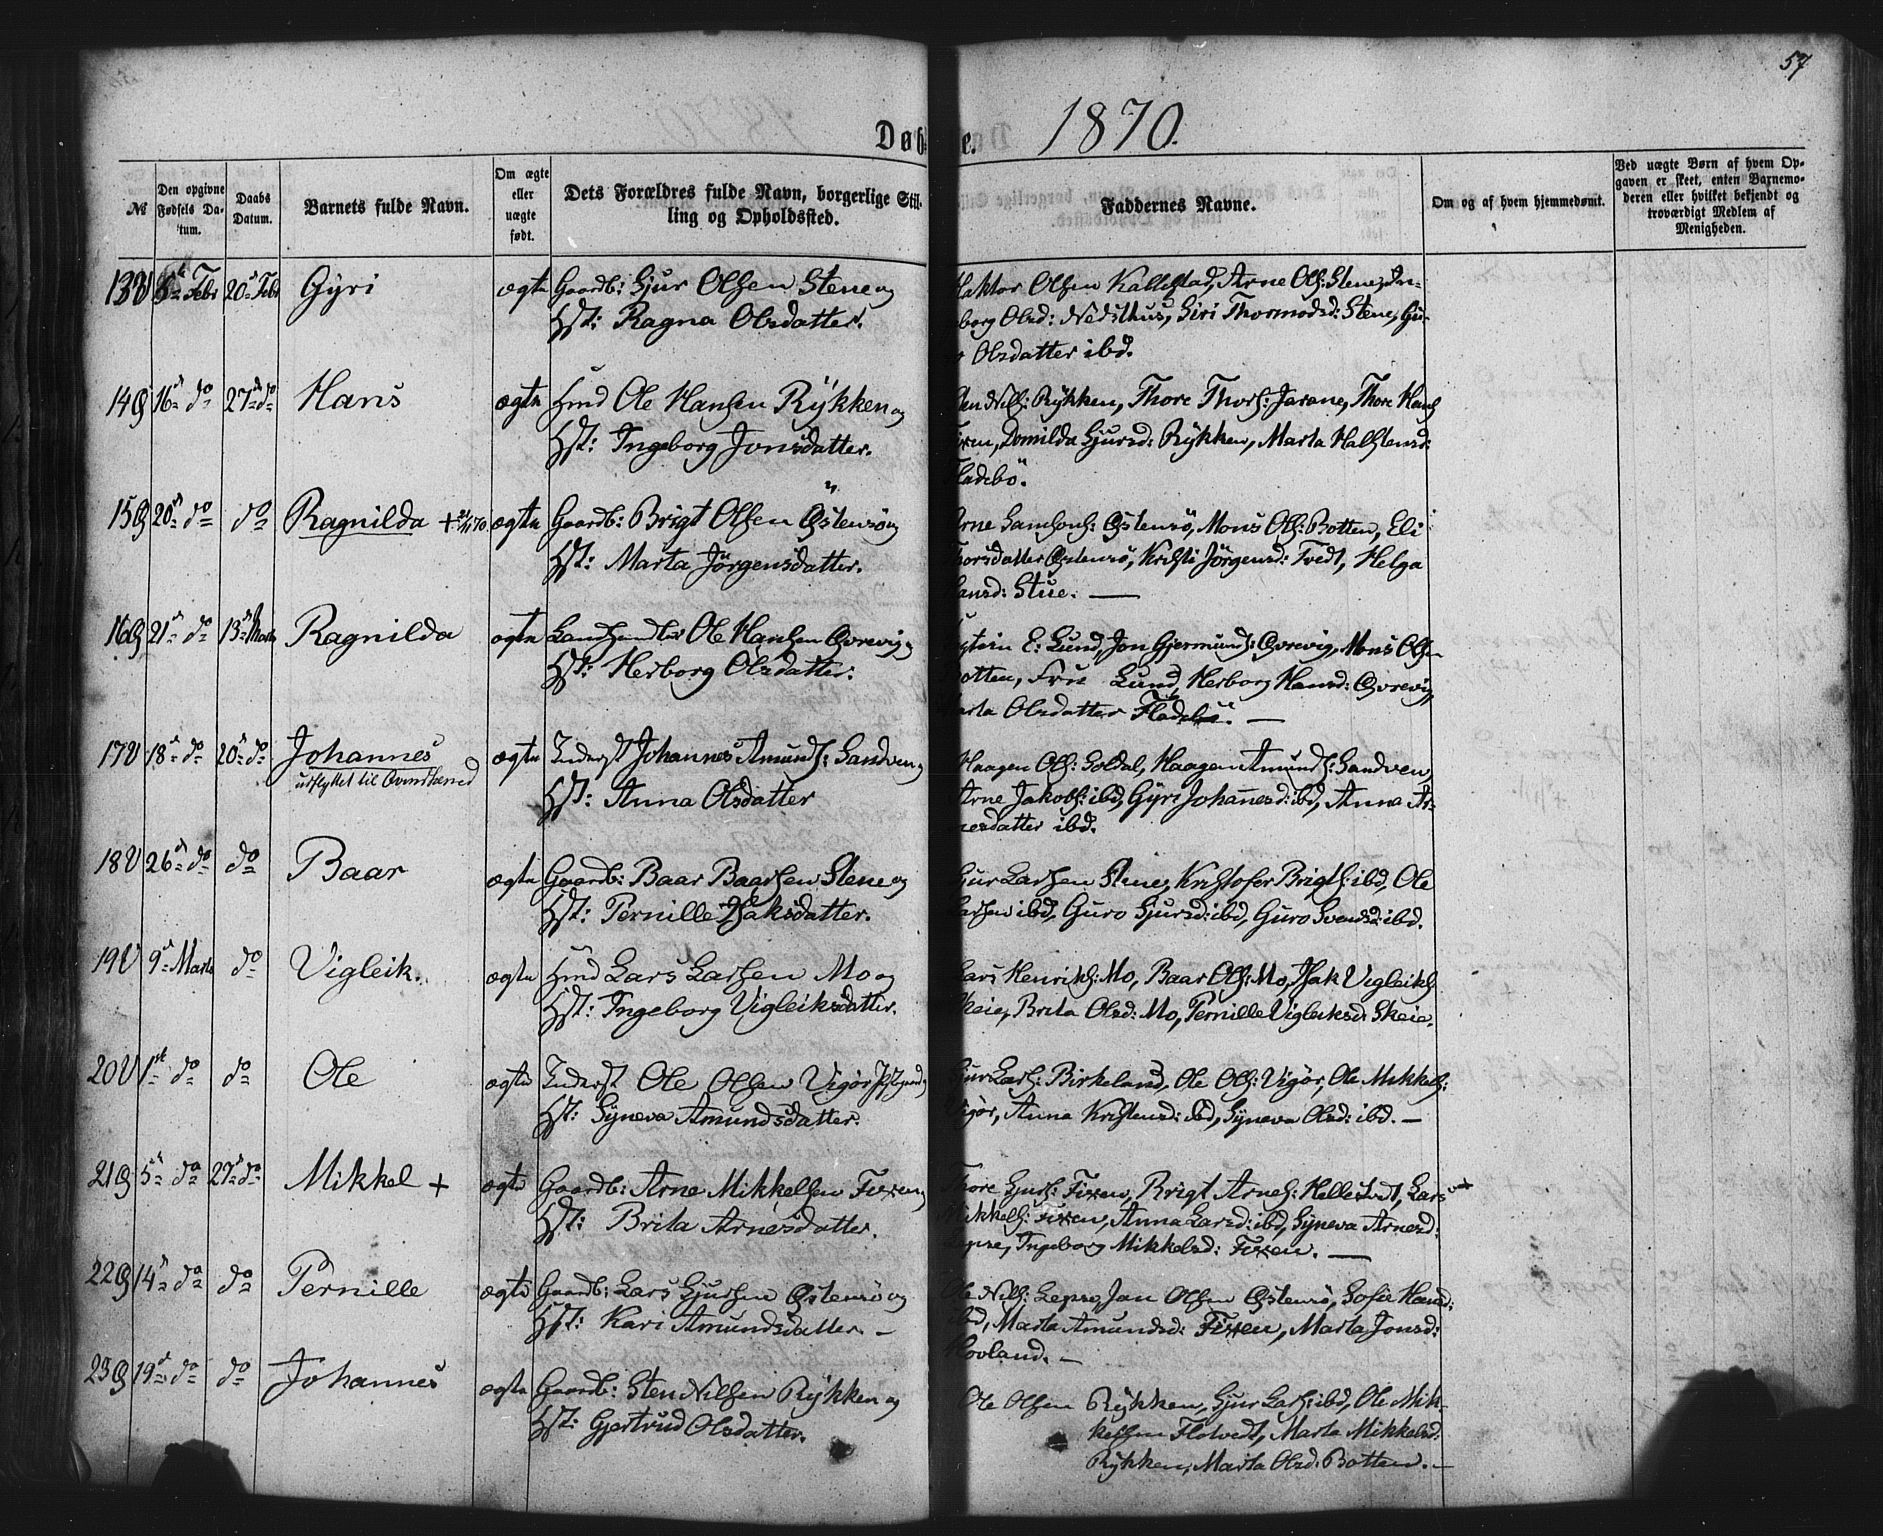 57
1870.
Døb e.
№
Den opgivne Fødsels Datum.
Daabs Datum.
Barnets fulde Navn.
Om ægte eller uægte født.
Dets Forældres fulde Navn, borgerlige Stilling og Opholdssted.
Faddernes Navne.
Om og af hvem hjemmedøbt.
Ved uægte Børn af hvem Opgaven er skeet, enten Barnemoderen eller hvilket bekjendt og troværdigt Medlem af Menigheden.
13 V Febr 20 Febr Gÿri ægte Gaardb: Sjur Olsen Stene og
Hst: Ragna Olsdatter.
Olsen Kallestad, Arne Ols: Stene, In-
borg Olsd: Nedsthus, Siri Thormodsd: Stene, Gu-
Olsdatter ibd.
14 Ø 16 do 27 do Hans ægte Hmd Ole Hansen Rÿkken og
Hst: Ingeborg Jonsdatter.
Nils: Rÿkken, Thore Thors: Jarane, Thore Hans
Domilda Sjursd: Rÿkken, Marta Halstensd:
ladebö.
15 Ø 20 do do Ragnilda + ægte Gaardb: Brigt Olsen Østensö og
Hst: Marta Jörgensdatter.
Arne Samsons: Østensö, Mons Ols: Botten, Eli
Thorsdatter Østensö, Kristi Jörgensd: Tvedt, Helga
Hansd: Stue. —
16 Ø 21 do 13 Marts Ragnilda ægte Landhandler Ole Hansen Øvrevig og
Hst: Herborg Olsdatter.
E: Lund, Jon Gjermunds: Øvrevig, Mons Olsen
otten, Frue Lund, Herborg Hansd: Øvrevig,
arta Olsdatter Fladebö. —
17 V 18 do 20 do Johannes ægte Inderst Johannes Amunds: Sandven og
udflyttet til Qvindherred
Hst: Anna Olsdatter
Haagen Ols: Soldal, Haagen Amunds: Sandven,
Arne Jakobs: ibd, Gÿri Johannesd: ibd, Anna Ar-
nesdatter ibd.
18 V 26 do do Baar ægte Gaardb: Baar Baarsen Stene og
Hst: Pernille Isaksdatter.
Sjur Larsen Stene, Kristofer Brigts: ibd, Ole
Larsen ibd, Guro Sjursd: ibd, Guro Svendsd: ibd.
19 V 9 Marts do Vigleik. ægte Hmd Lars Larsen Mo og
Hst: Ingeborg Vigleiksdatter.
Lars Henriks: Mo, Baar Ols: Mo, Isak Vigleiks:
Skeie, Brita Olsd: Mo, Pernille Vigleiksd: Skeie.
20 V 1 do do Ole ægte Inderst Ole Olsen Vigör og
Hst: Sÿneva Amundsdatter.
Sjur Lars: Birkeland, Ole Ols: Vigör, Ole Mikkels:
Vigör, Anna Kristensd: ibd, Sÿneva Olsd: ibd. —
21 Ø 5 do 27 do Mikkel + ægte Gaardb: Arne Mikkelsen Fixen og
Hst: Brita Arnesdatter.
Thore Sjurs: Fixen, Brigt Arnes: Hellestvedt, Lars
Mikkels: Fixen, Anna Larsd: ibd, Sÿneva Arnesd:
Lepsø, Ingeborg Mikkelsd: Fixen. —
22 Ø 14 do do Pernille ægte Gaardb: Lars Sjursen Østensö og
Hst: Kari Amundsdatter —
Ole Nils: Lepsø, Jan Olsen Østensö, Sofie Hansd:
ibd, Marta Amundsd: Fixen, Marta Jonsd:
Hovland. —
23 Ø 19 do do Johannes ægte Gaardb: Sten Nilsen Rÿkken og
Hst: Gjertrud Olsdatter.
Ole Olsen Rÿkken, Sjur Lars: ibd, Ole Mik-
kelsen Flotvedt, Marta Mikkelsd:
Rÿkken, Marta Olsd: Botten. —